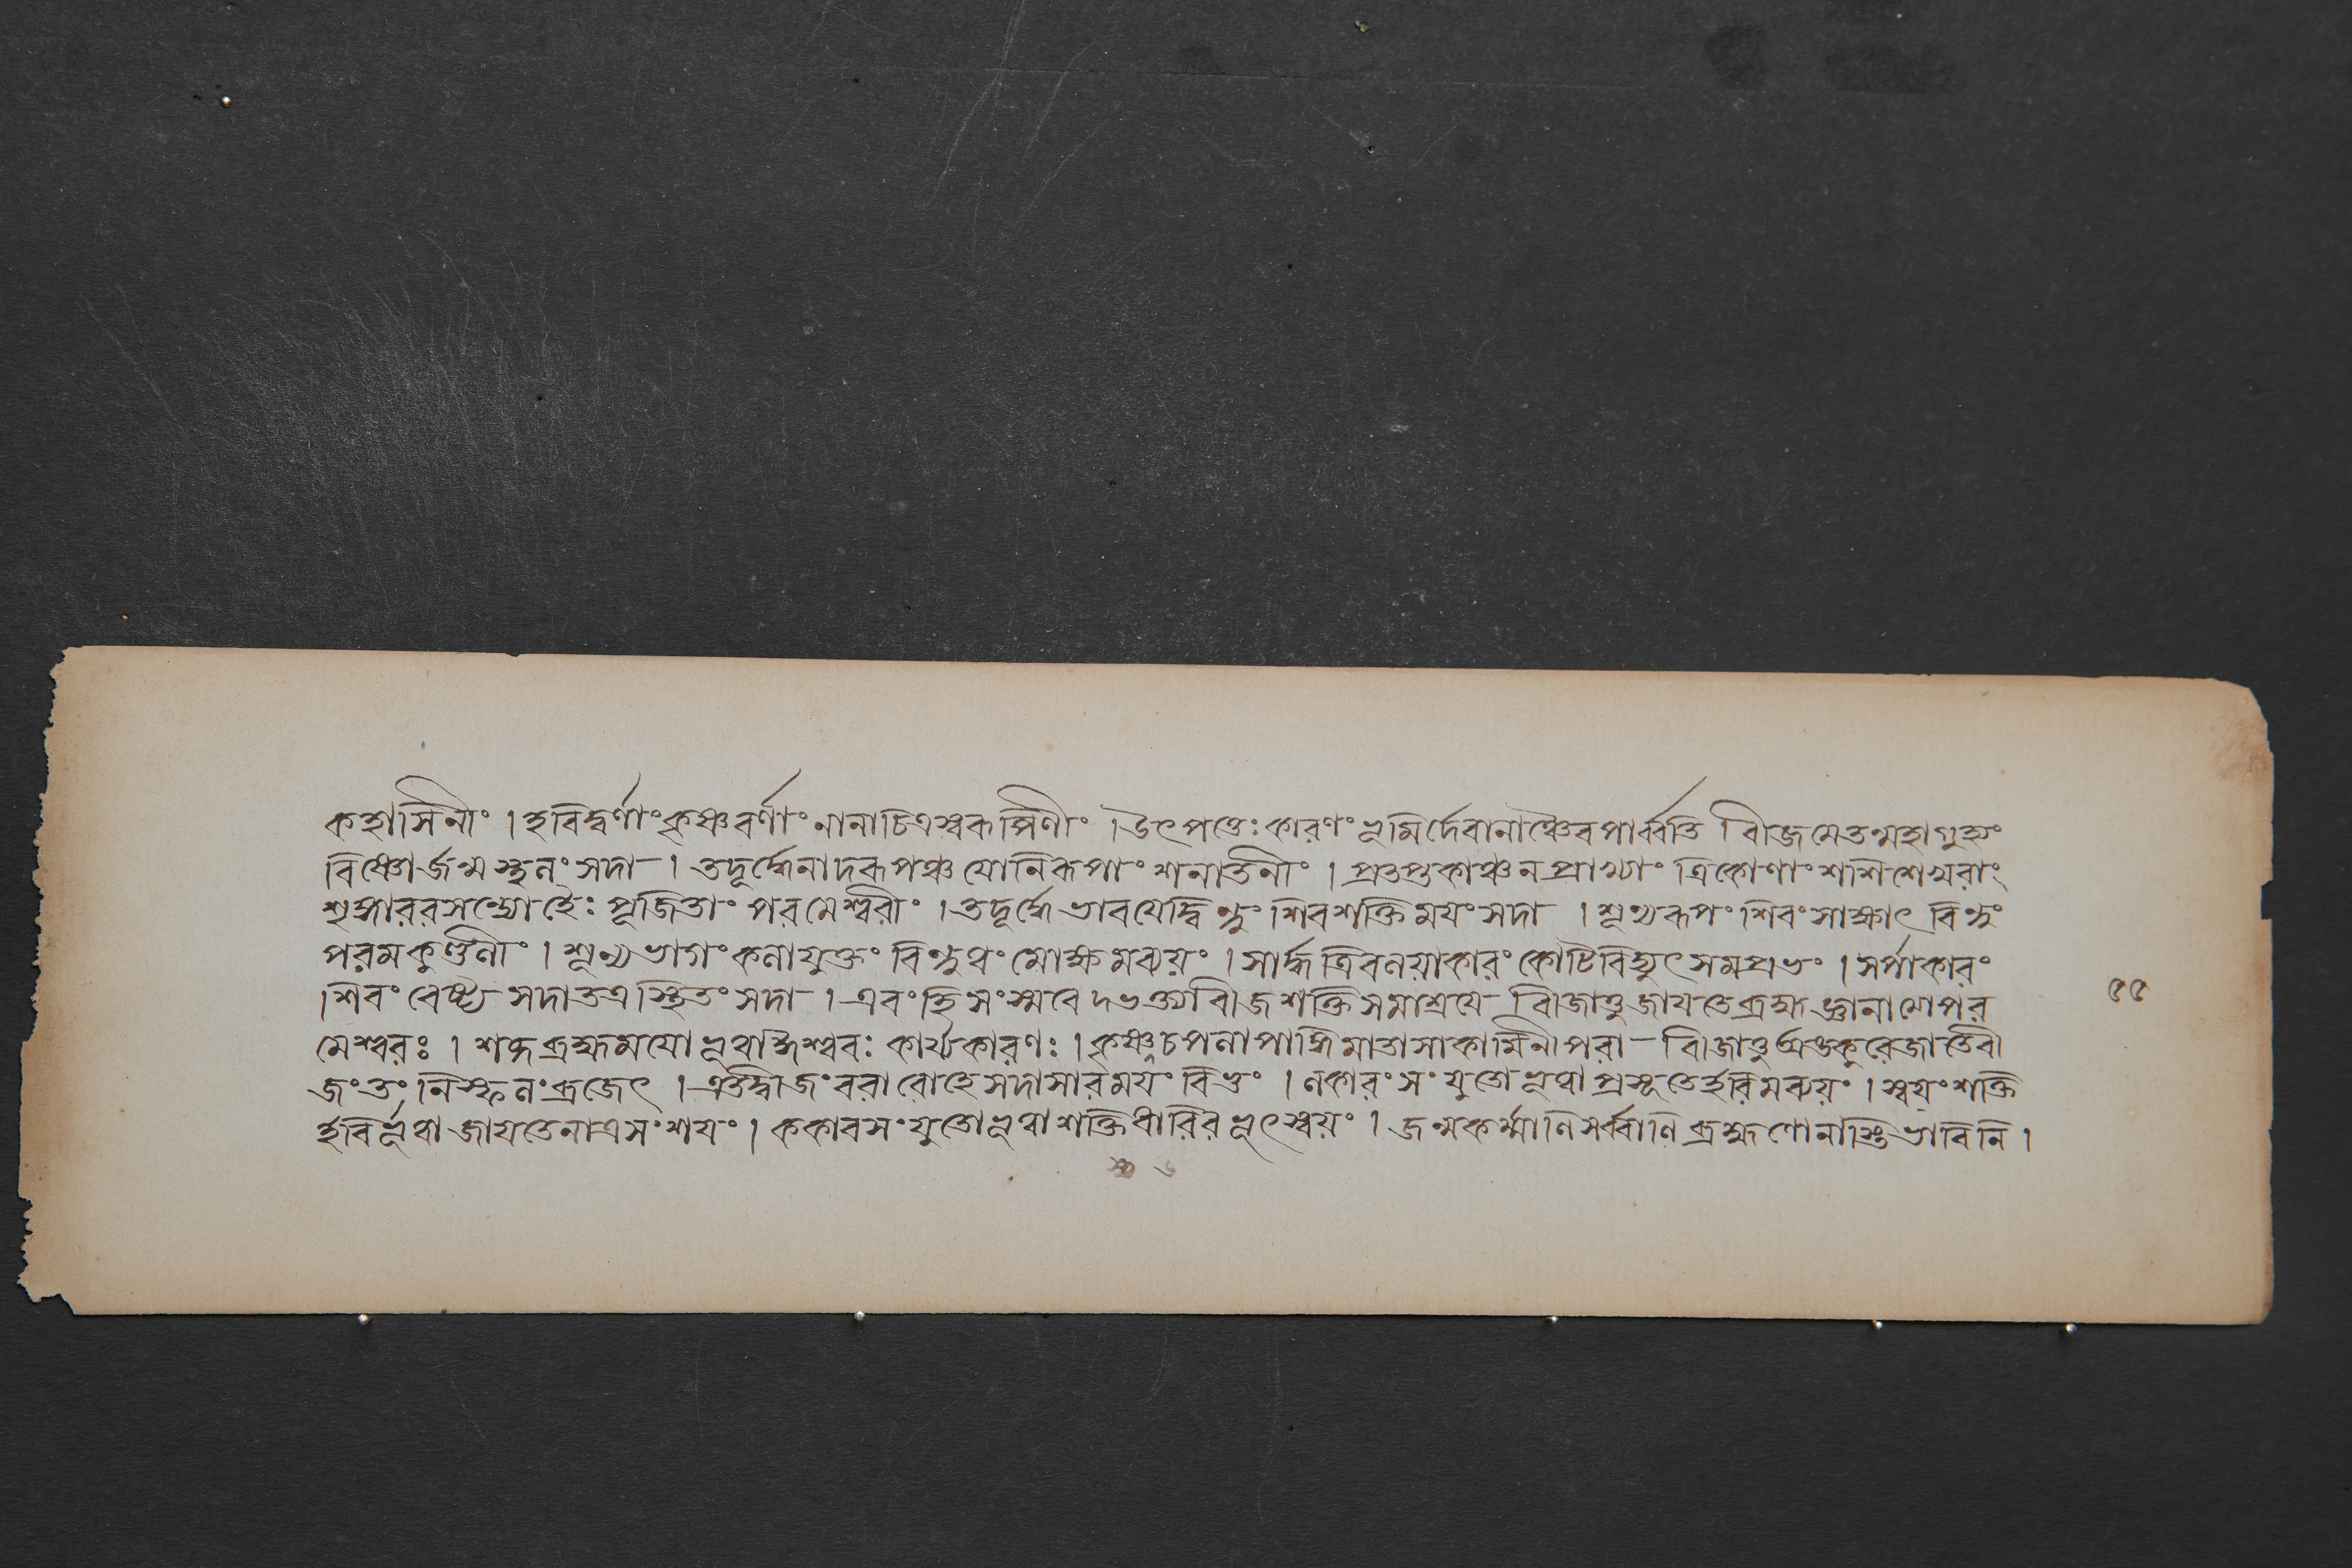 কহাসিনীং । হবিদ্বর্ণাং কৃষ্ণবর্ণাং নানাচিত্রস্বরূপিণীং । উৎপত্তেঃ কারণং ভূমির্দেবানাঞ্চৈব পার্ব্বতি বীজমেতন্মহাগুহ্যং
বিষ্ণোর্জন্মস্থনং সদা । তদূর্দ্ধেনাদরূপঞ্চ যোনিরূপাং শনাতনীং । প্রতপ্তকাঞ্চনপ্রাখ্যাং ত্রিকোণাং শশিশেখরাং
শৃঙ্গাররসসন্দোহৈঃ পূজিতাং পরমেশ্বরীং । তদূর্দ্ধে ভাবযেদ্বিন্দুং শিবশক্তিময়ং সদা । শূন্যরূপং শিবং সাক্ষাৎ বিন্দুং
পরমকুণ্ডলীং । শূন্যভাগং কলাযুক্তং বিন্দুধং মোক্ষমব্যয়ং । সার্দ্ধত্রিবলয়াকারং কোটিবিদ্যুৎসমপ্রভং । সর্পাকারং
শিবং বেষ্ট্য সদা তত্র স্থিতং সদা । এবং হি সংস্মবে দভক্ত্যবীজশক্তিসমাশ্রযে বীজাত্তু জাযতে ব্রহ্ম জ্ঞানাখ্যোপর
মেশ্বরঃ । শব্দব্রহ্মমযো ভূত্বা হীশ্বরঃ কার্য্যকারণঃ । কৃষ্ণস্তু চপলাপাঙ্গি মাতা সা কামিনী পরা বীজাত্তু অঙ্কুরে জাতে বী
জং তং নিস্ফলং ব্রজেৎ । এতদ্বীজং বরারোহে সদা সারময়ং বিভুং । লকারং সংযুতো ভূত্বা প্রসূতে হরিমব্যয়ং । স্বয়ং শক্তি
র্হবির্ভূত্বা জাযতে নাত্র সংশযঃ । ককাবসংযুতো ভূত্বা শক্তিধারিরভূৎ স্বয়ং । জন্মকর্ম্মাণি সর্ব্বাণি ব্রহ্মণো নাস্তি ভাবিনি ।
৫৫